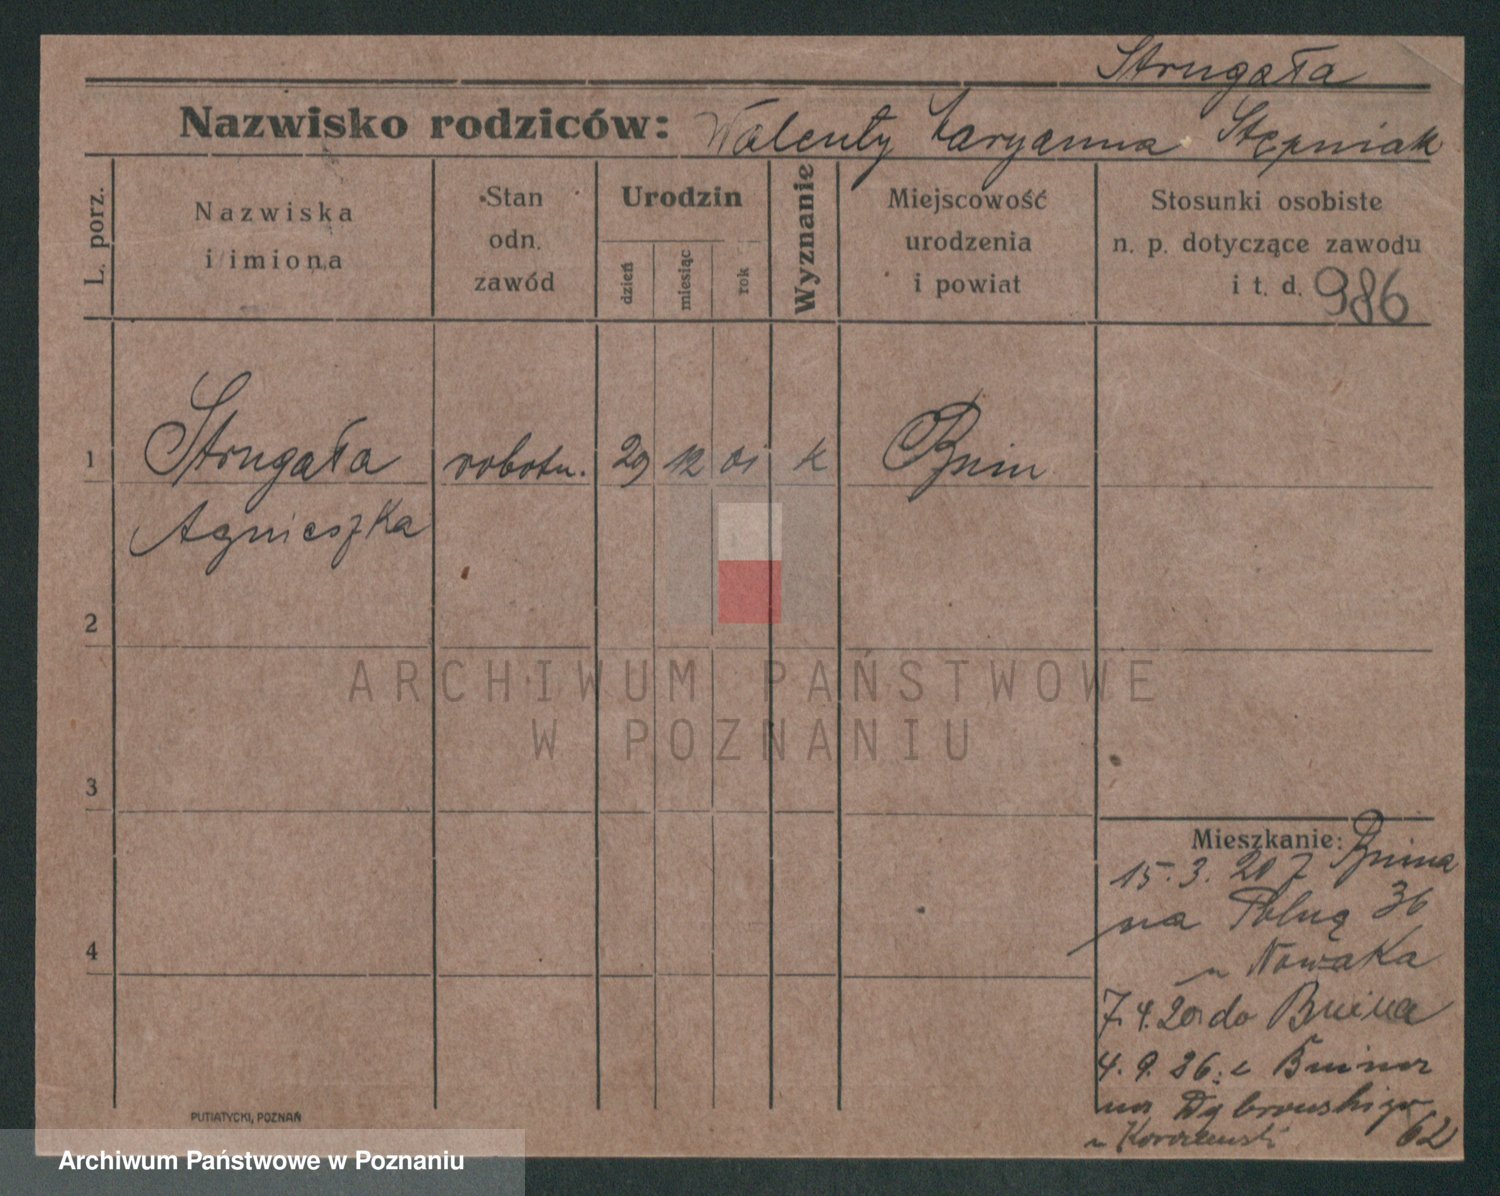 Strugała
Nazwisko rodziców: Walenty Maryanna Stępniak
L. porz.
Nazwiska
i imiona
Stan
odn.
zawód
Urodzin
dzień
miesiąc
rok
Wyznanie
Miejscowość
urodzenia
i powiat
Stosunki osobiste
n. p. dotyczące zawodu
i t. d. 986
1 Strugała robotn. 29 12 01 k Bnin
Agnieszka
2
3
4
Mieszkanie:
15.3.20 z Bnina
na Polną 36
u Nowaka
7.4.20 do Bnina
4.9.26. z Bnina
na Dąbrowskiego
u 62
PUTIATYCKI, POZNAŃ
ARCHIWUM PAŃSTWOWE
W POZNANIU
Archiwum Państwowe w Poznaniu